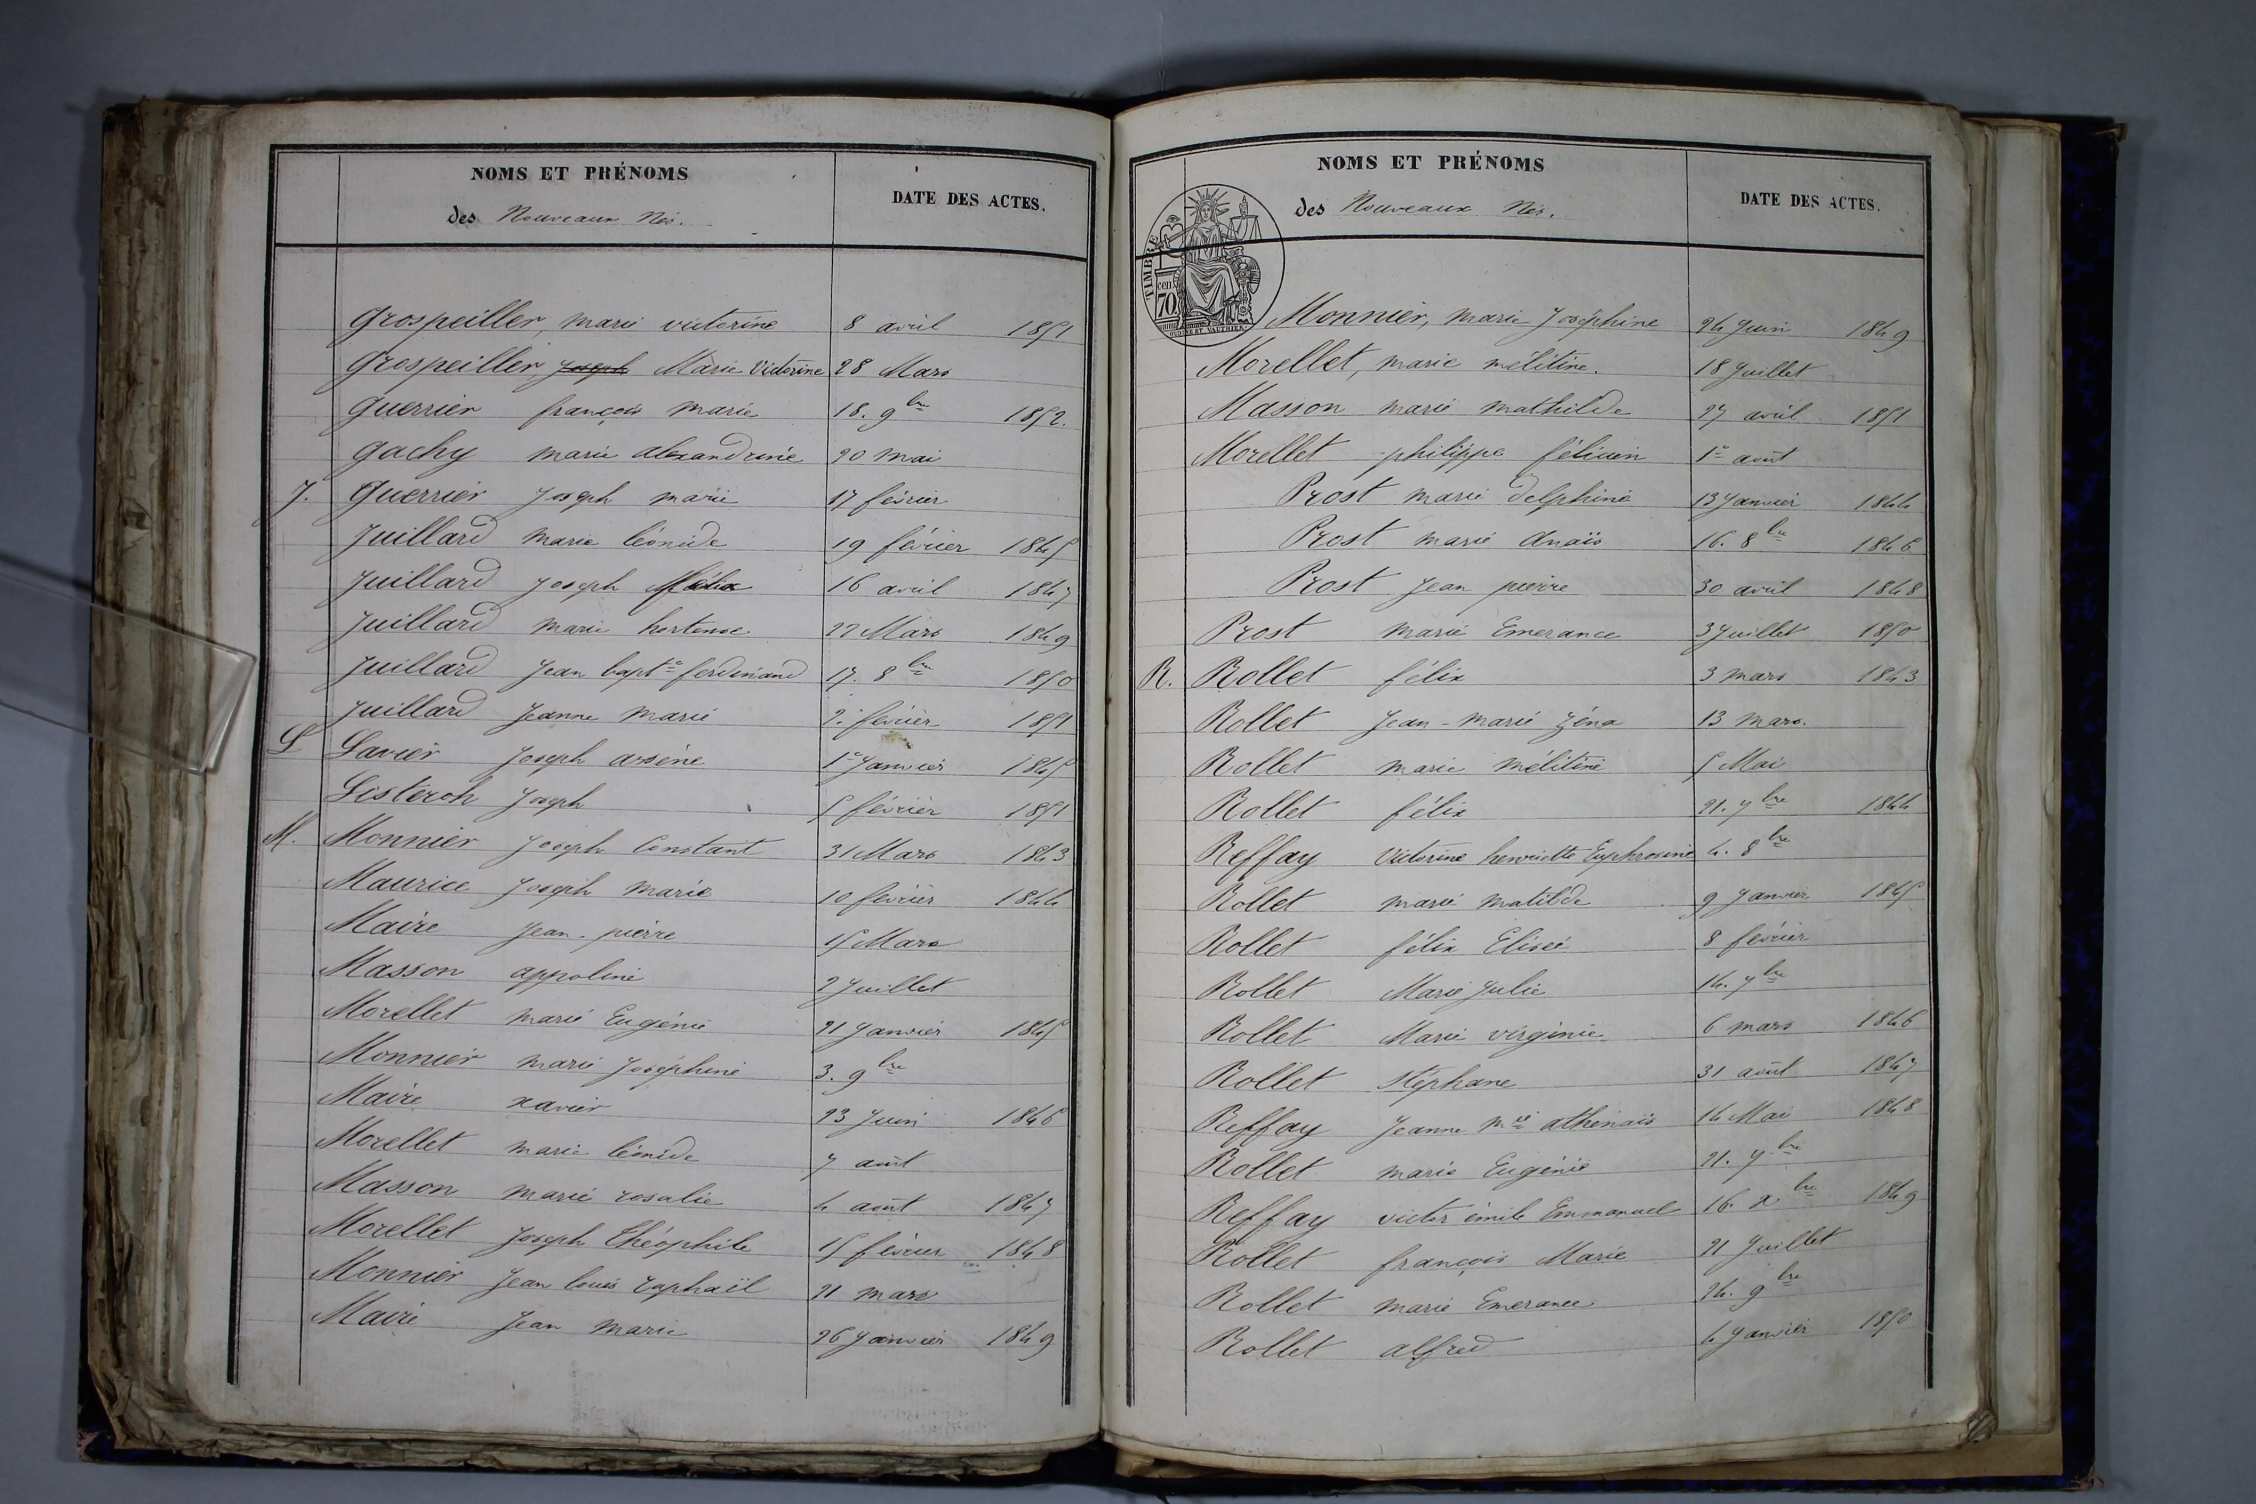 NOMS ET PRÉNOMS
des Nouveaux Nés.
DATE DES ACTES.
Grospeiller, marie victorine 8 avril 1851
Grospeiller, Joseph Marie Victorine 28 Mars
Guerrier françois marie 18. 9bre 1852.
Gachy marie alexandrine 20 mai
J. Guerrier Joseph marie 17 février
Juillard marie léonide 19 février 1845
Juillard Joseph félix 16 avril 1847
Juillard marie hortense 22 Mars 1849
Juillard Jean bapte ferdinand 17. 8bre 1850
Juillard Jeanne marie 2. février 1851
L Lavier Joseph arsène 1er Janvier 1845
Listeroh Joseph 5 février 1851
M. Monnier Joseph Constant 31 Mars 1843
Maurice Joseph marie 10 février 1844
Maire Jean-pierre 15 Mars
Masson appoline 2 Juillet
Morellet marie Eugénie 21 Janvier 1845
Monnier marie Joséphine 3. 9bre
Maire xavier 23 Juin 1846
Morellet marie léonide 7 août
Masson marie rosalie 4 août 1847
Morellet Joseph théophile 15 février 1848
Monnier Jean louis raphaël 21 mars
Maire Jean marie 26 Janvier 1849
NOMS ET PRÉNOMS
des Nouveaux Nés.
DATE DES ACTES.
TIMBRE
cen.
70
Monnier, marie Joséphine 24 Juin 1849
Morellet, marie mélitine. 18 Juillet
Masson marie mathilde 27 avril 1851
Morellet philippe félicien 1er août
Prost marie delphine 13 Janvier 1844
Prost marie Anaïs 16. 8bre 1846
Prost Jean pierre 30 avril 1848
Prost marie Emerance 3 Juillet 1850
R. Rollet félix 3 mars 1843
Rollet Jean-marie Zéna 13 mars.
Rollet marie mélitine 5 Mai
Rollet félix 21. 7bre 1844
Reffay Victorine henriette Euphrosine 4. 8bre
Rollet marie matilde 9 Janvier 1845
Rollet félix Elisée 8 février
Rollet Marie Julie 14. 7bre
Rollet Marie virginie 6 mars 1846
Rollet stéphane 31 août 1847
Reffay Jeanne mie athénaïs 14 Mai 1848
Rollet marie Eugénie 21. 7bre
Reffay victor émile Emmanuel 16. xbre 1849
Rollet françois Marie 21 Juillet
Rollet marie Emerance 24. 9bre
Rollet alfred 4 Janvier 1850